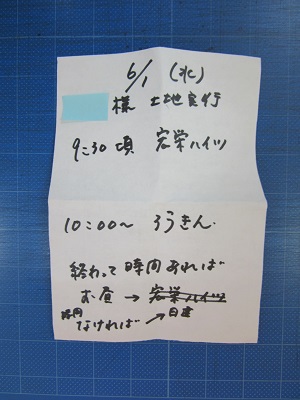 6/1 (水)
様 土地良行
9:30 頃 宏栄ハイツ
10:00〜 ろうきん.
終わって 時間あれば
お昼 → 宏栄ハイツ
時間 なければ → 日産